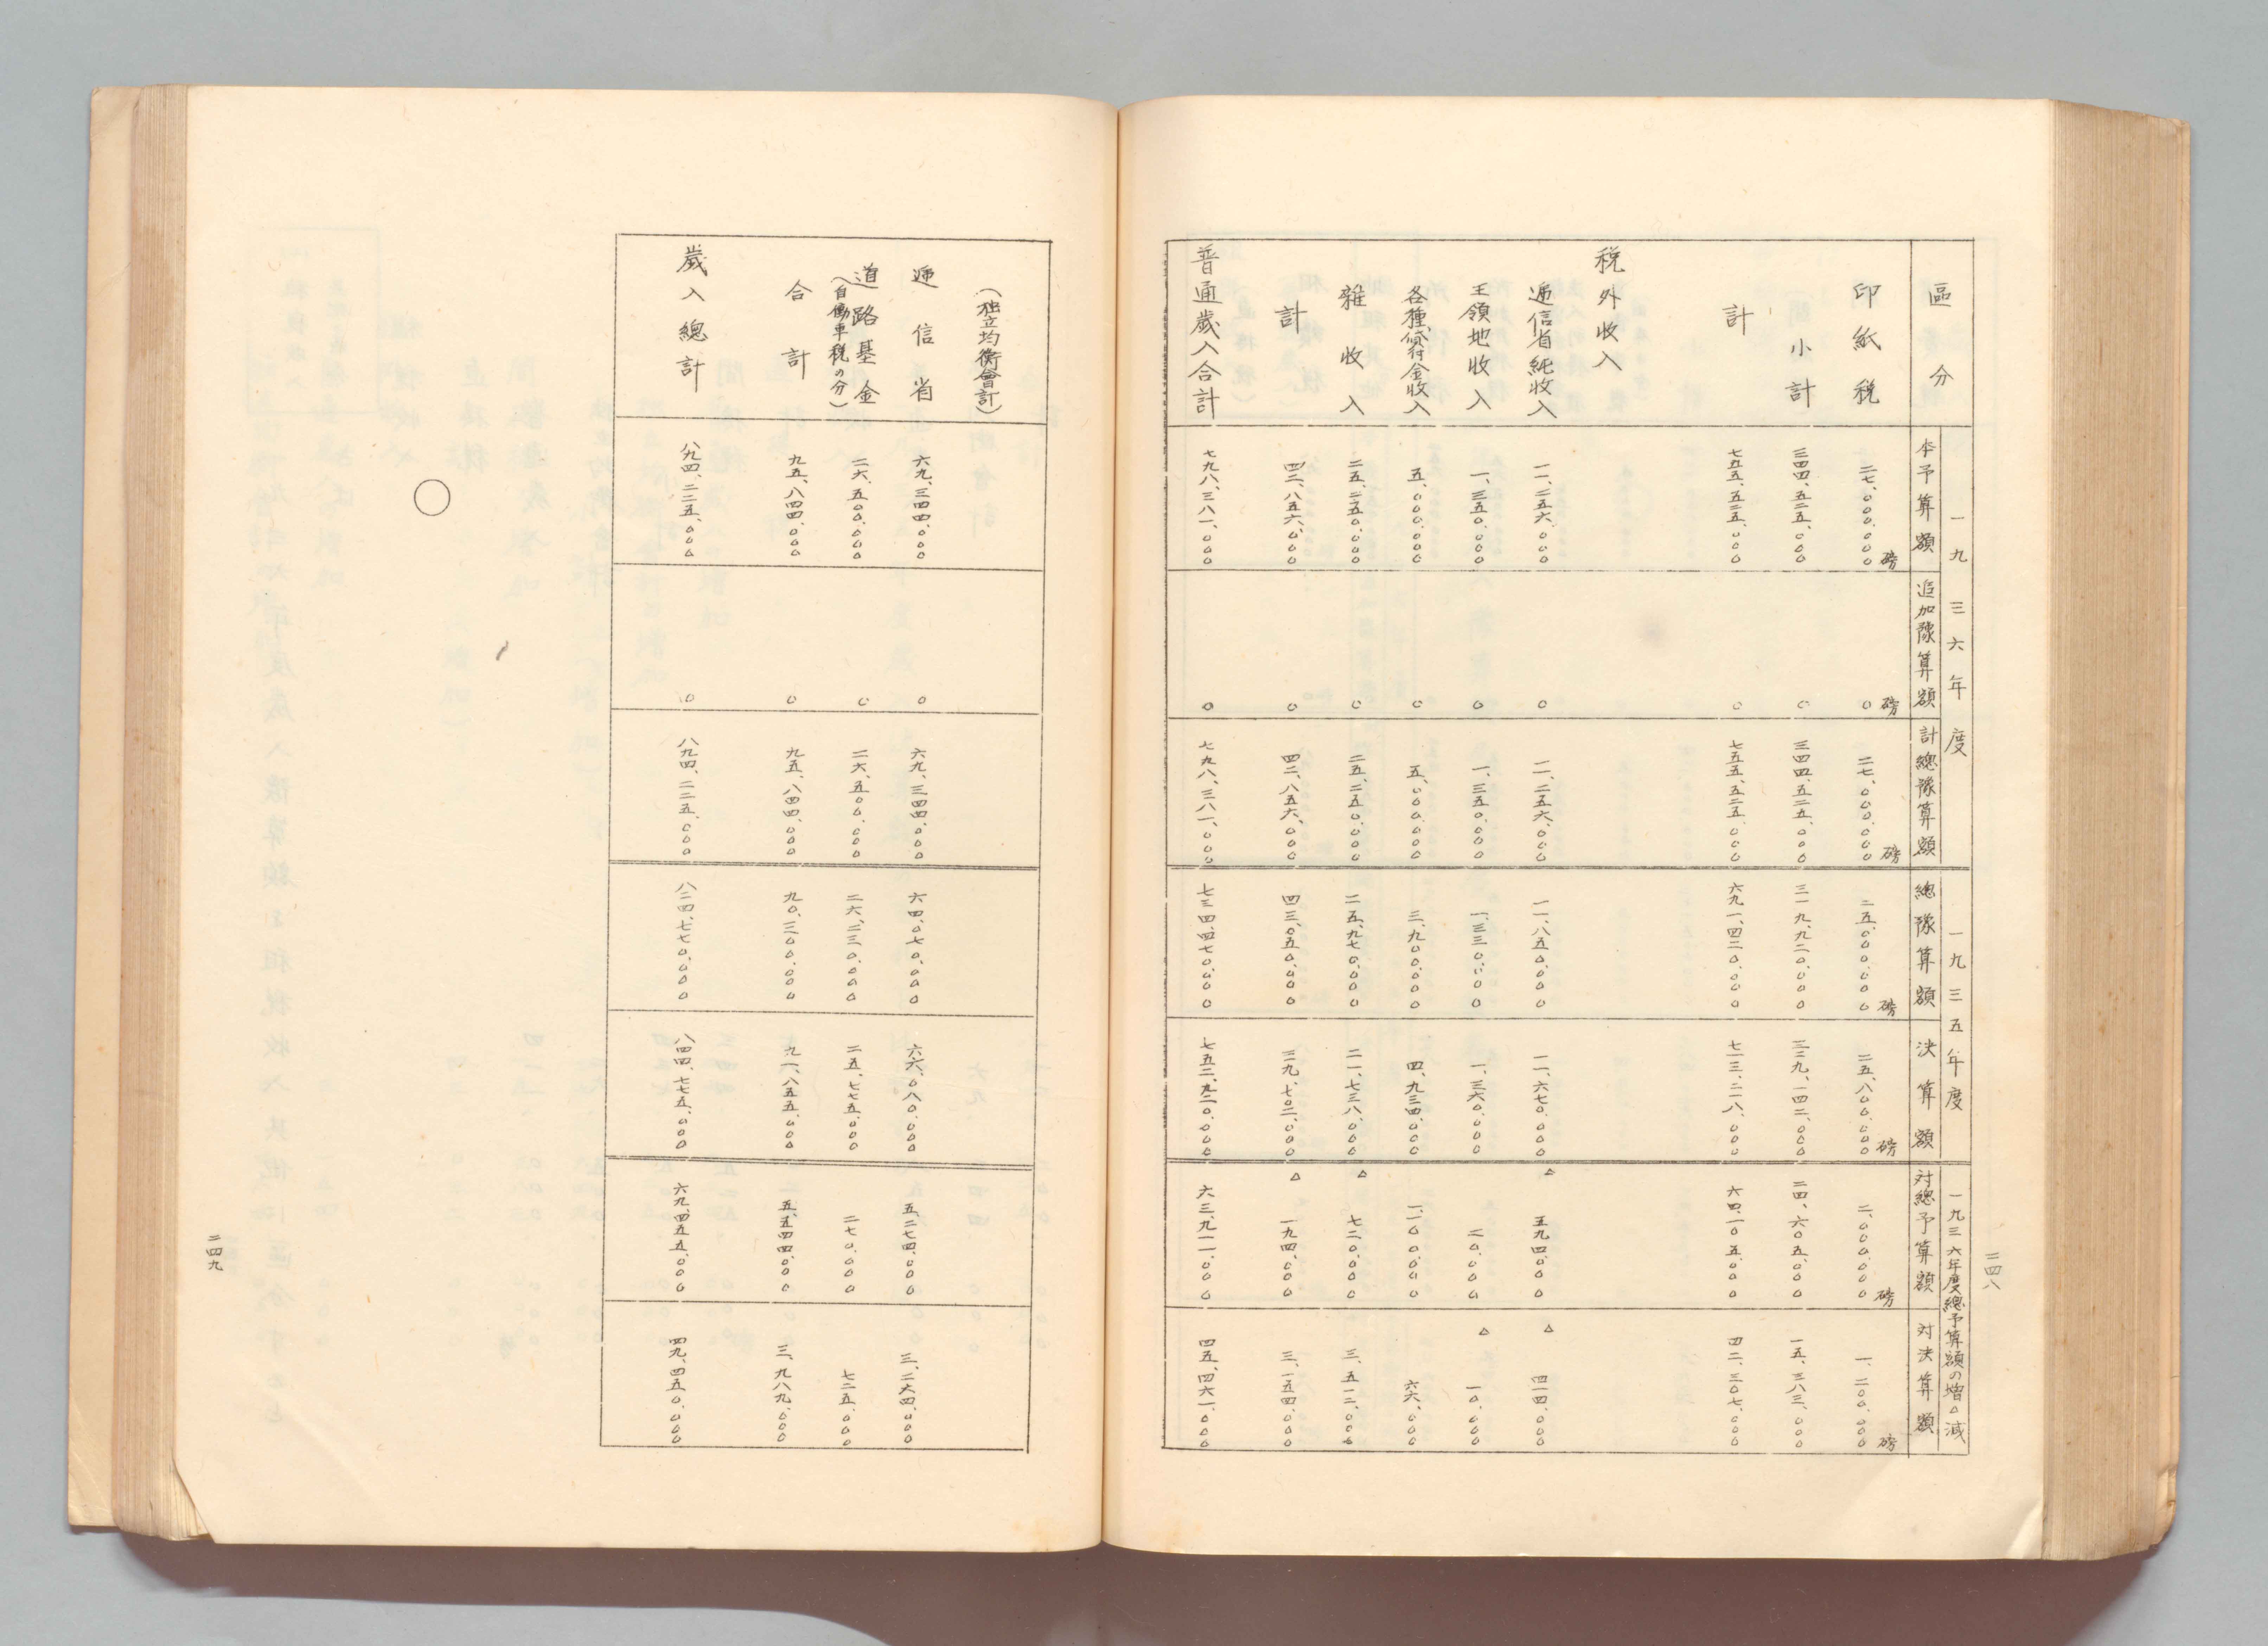 二四八
區分
一九三六年度
本予算額
追加豫算額
計總豫算額
一九三五年度
總豫算額
決算額
一九三六年度總予算額の増△減
対總予算額
対決算額
印紙税 二七、〇〇〇、〇〇〇磅 〇磅 二七、〇〇〇、〇〇〇磅 二五、〇〇〇、〇〇〇磅 二五、八〇〇、〇〇〇磅 二、〇〇〇、〇〇〇磅 一、二〇〇、〇〇〇磅
小計 三四四、五二五、〇〇〇 〇 三四四、五二五、〇〇〇 三一九、九二〇、〇〇〇 三二九、一四二、〇〇〇 二四、六〇五、〇〇〇 一五、三八三、〇〇〇
計 七五五、五二五、〇〇〇 〇 七五五、五二五、〇〇〇 六九一、四二〇、〇〇〇 七一三、二一八、〇〇〇 六四、一〇五、〇〇〇 四二、三〇七、〇〇〇
税外收入
逓信省純收入 一一、二五六、〇〇〇 〇 一一、二五六、〇〇〇 一一、八五〇、〇〇〇 一一、六七〇、〇〇〇 △五九四、〇〇〇 △四一四、〇〇〇
王領地收入 一、三五〇、〇〇〇 〇 一、三五〇、〇〇〇 一、三三〇、〇〇〇 一、三六〇、〇〇〇 二〇、〇〇〇 △一〇、〇〇〇
各種貸付金收入 五、〇〇〇、〇〇〇 〇 五、〇〇〇、〇〇〇 三、九〇〇、〇〇〇 四、九三四、〇〇〇 一、一〇〇、〇〇〇 六六、〇〇〇
雜收入 二五、二五〇、〇〇〇 〇 二五、二五〇、〇〇〇 二五、九七〇、〇〇〇 二一、七三八、〇〇〇 △七二〇、〇〇〇 三、五一二、〇〇〇
計 四二、八五六、〇〇〇 〇 四二、八五六、〇〇〇 四三、〇五〇、〇〇〇 三九、七〇二、〇〇〇 △一九四、〇〇〇 三、一五四、〇〇〇
普通歳入合計 七九八、三八一、〇〇〇 〇 七九八、三八一、〇〇〇 七三四、四七〇、〇〇〇 七五二、九二〇、〇〇〇 六三、九一一、〇〇〇 四五、四六一、〇〇〇
（独立均衡會計）
逓信省 六九、三四四、〇〇〇 〇 六九、三四四、〇〇〇 六四、〇七〇、〇〇〇 六六、〇八〇、〇〇〇 五、二七四、〇〇〇 三、二六四、〇〇〇
道路基金（自働車税の分） 二六、五〇〇、〇〇〇 〇 二六、五〇〇、〇〇〇 二六、二三〇、〇〇〇 二五、七七五、〇〇〇 二七〇、〇〇〇 七二五、〇〇〇
合計 九五、八四四、〇〇〇 〇 九五、八四四、〇〇〇 九〇、三〇〇、〇〇〇 九一、八五五、〇〇〇 五、五四四、〇〇〇 三、九八九、〇〇〇
歳入總計 八九四、二二五、〇〇〇 〇 八九四、二二五、〇〇〇 八二四、七七〇、〇〇〇 八四四、七七五、〇〇〇 六九、四五五、〇〇〇 四九、四五〇、〇〇〇
二四九